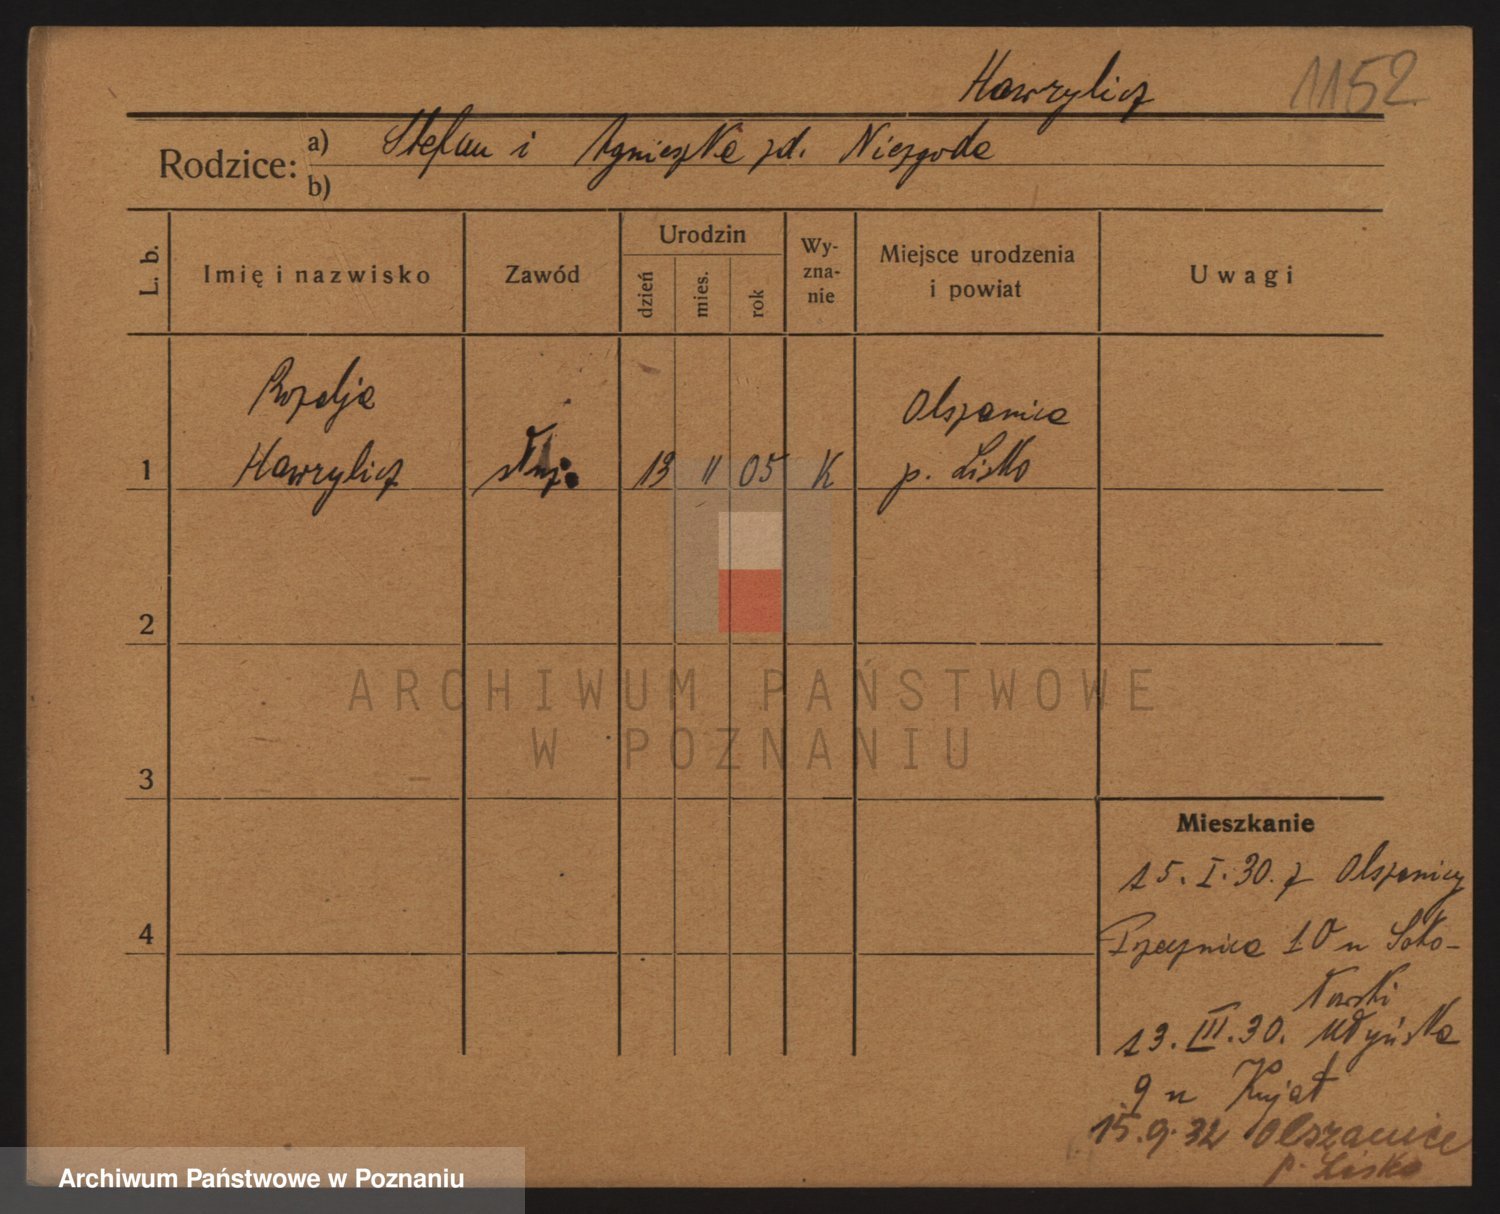 Hawrylicz 1152
Rodzice: a) Stefan i Agnieszka zd. Niezgoda
b)
L. b. Imię i nazwisko Zawód Urodzin dzień mies. rok Wy-zna-nie Miejsce urodzenia i powiat Uwagi
Rozalja Olszanica
1 Hawrylicz służ. 13 II 05 K p. Lisko
2
ARCHIWUM PAŃSTWOWE
W POZNANIU
3
Mieszkanie
15. I. 30. z Olszanicy
4 Pszczynica 10 u Soko-
łowski
13. III. 30. Młyńska
9 u Kujat
15. 9. 32 Olszanice
p. Lisko
Archiwum Państwowe w Poznaniu